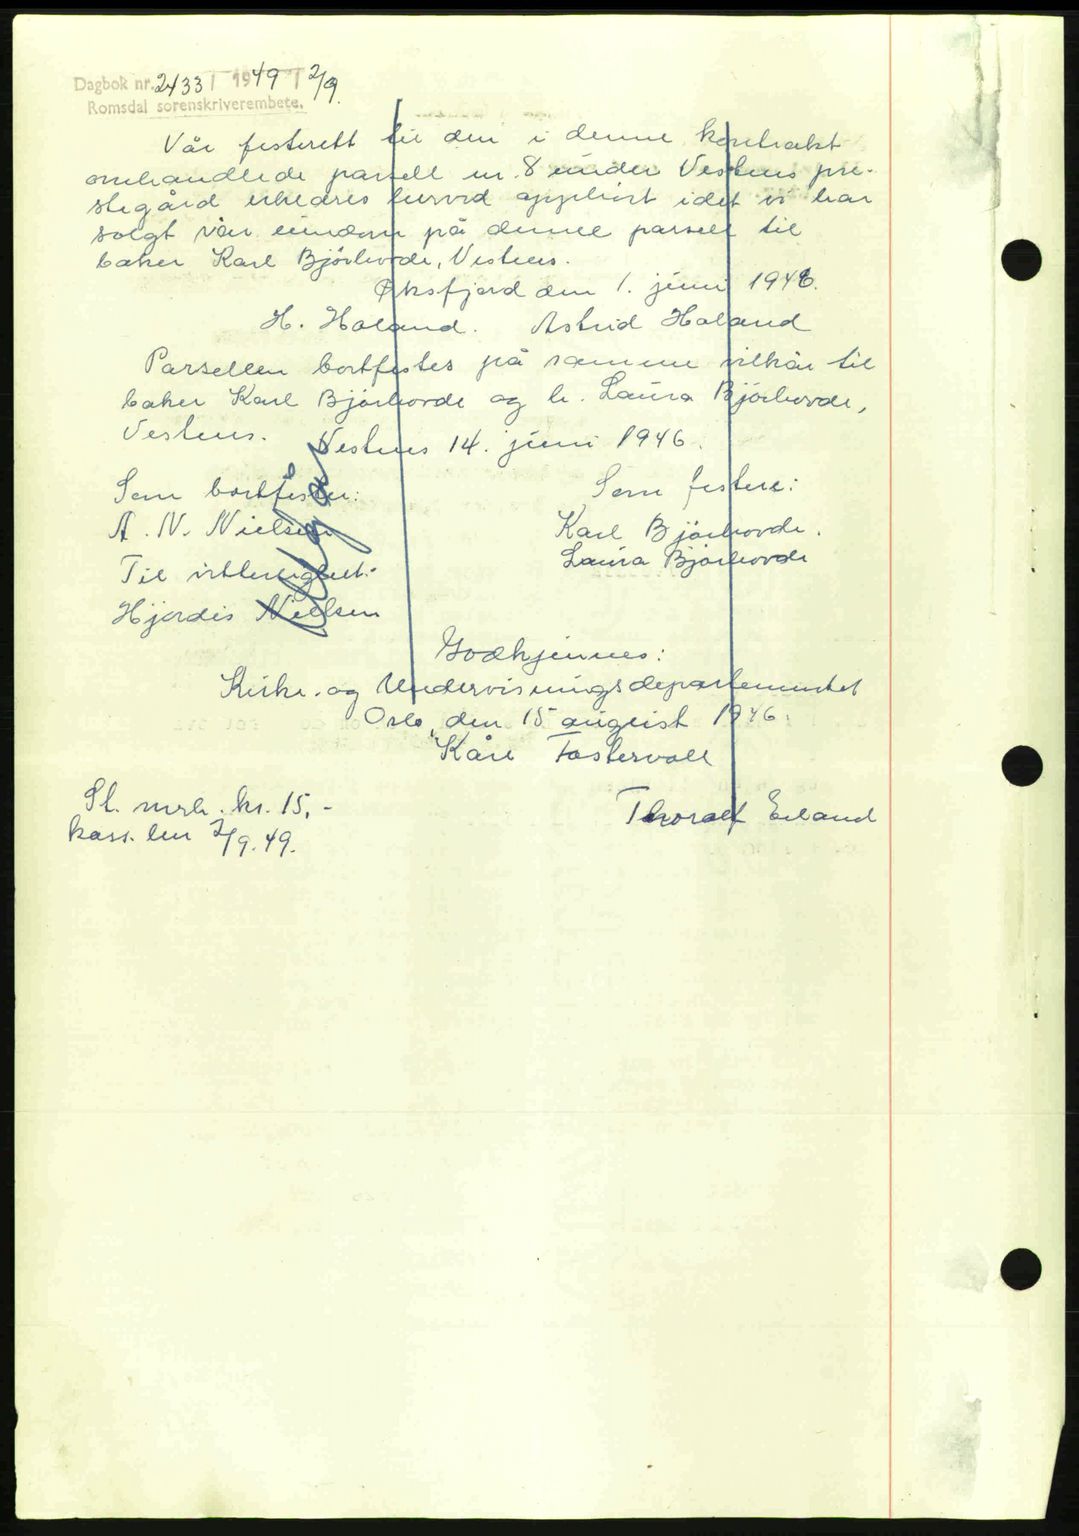 Dagbok nr. 2433 / 1949 2/9.
Romsdal sorenskriverembete.
Vår festerett til den i denne kontrakt
omhandlede parsell nr. 8 under Vestnes pre-
stegård erklæres herved opphört idet vi har
solgt vår eiendom på denne parsell til
baker Karl Bjórhovde, Vestnes.
Øksfjord den 1. juni 1946.
H. Haland. Astrid Haland
Parsellen bortfestes på samme vilkår til
baker Karl Bjórhovde og h. Laura Bjórhovde,
Vestnes. Vestnes 14. juni 1946.
Som bortfester: Som festere:
A. N. Nielsen Karl Bjórhovde.
Til vitterlighet: Laura Bjórhovde
Hjördis Nielsen
Godkjennes:
Kirke- og Undervisningsdepartementet
Oslo, den 15 august 1946.
Kåre Fostervoll
St. mrk. kr. 15,- Thoralf Eiland
kass. len 2/9.49.